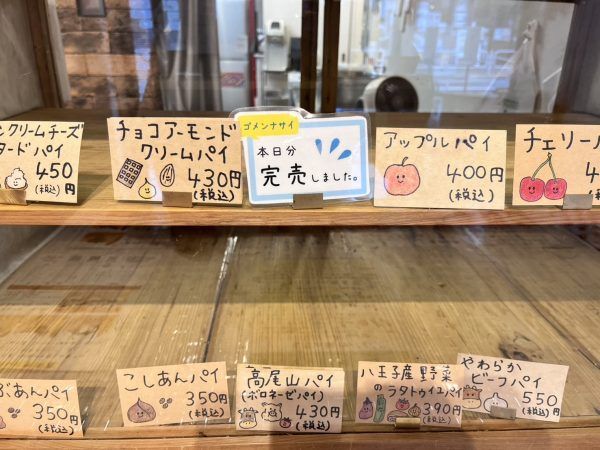 クリームチーズ
タードパイ
450
(税込)円
チョコアーモンド
クリームパイ
430円
(税込)
ゴメンナサイ
本日分
完売しました。
アップルパイ
400円
(税込)
チェリー
4
(税
ぶあんパイ
350円
(税込)
こしあんパイ
350円
(税込)
高尾山パイ
(ボロネーゼパイ)
430円
(税込)
八王子産野菜
のラタトゥイユパイ
390円
(税込)
やわらか
ビーフパイ
550
(税込)円